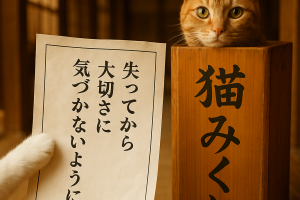 失ってから
大切さに
気づかないように
猫みく